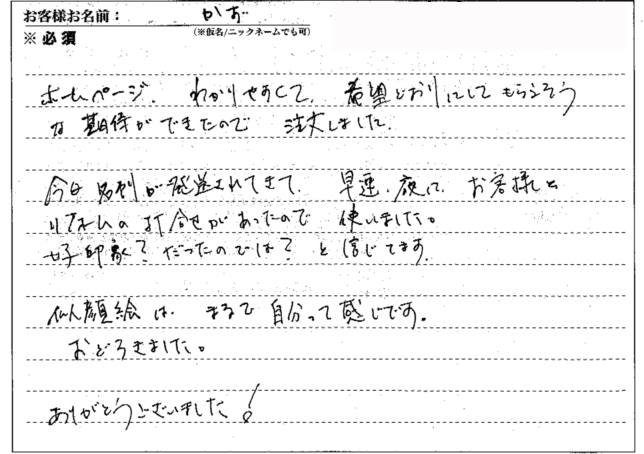 お客様お名前： かお
※必須 （※仮名/ニックネームでも可）
ホームページ、わかりやすくて、希望どおりにしてもらえそう
な期待ができたので 注文しました。
今日 名刺が発送されてきて、早速、夜に、お客様と
リフォームの打合せがあったので 使いました。
好印象？だったのでは？と信じてます。
似顔絵は、まるで自分って感じです。
おどろきました。
ありがとうございました！